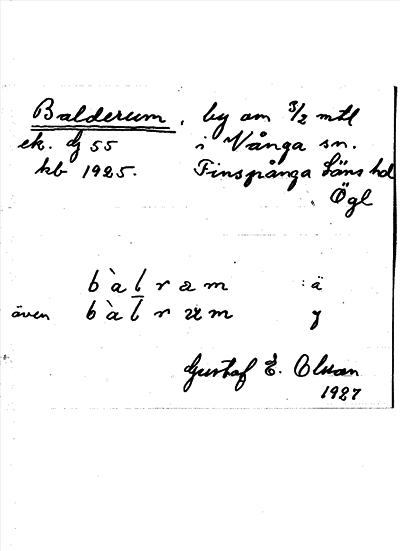 Balderum, by om 3/2 mtl
ek. bl 55 i Vånga sn.
kb 1925. Finspånga läns hd
Ögl
bàlram : ä
även bàlrum y
Gustaf E. Olsson
1927